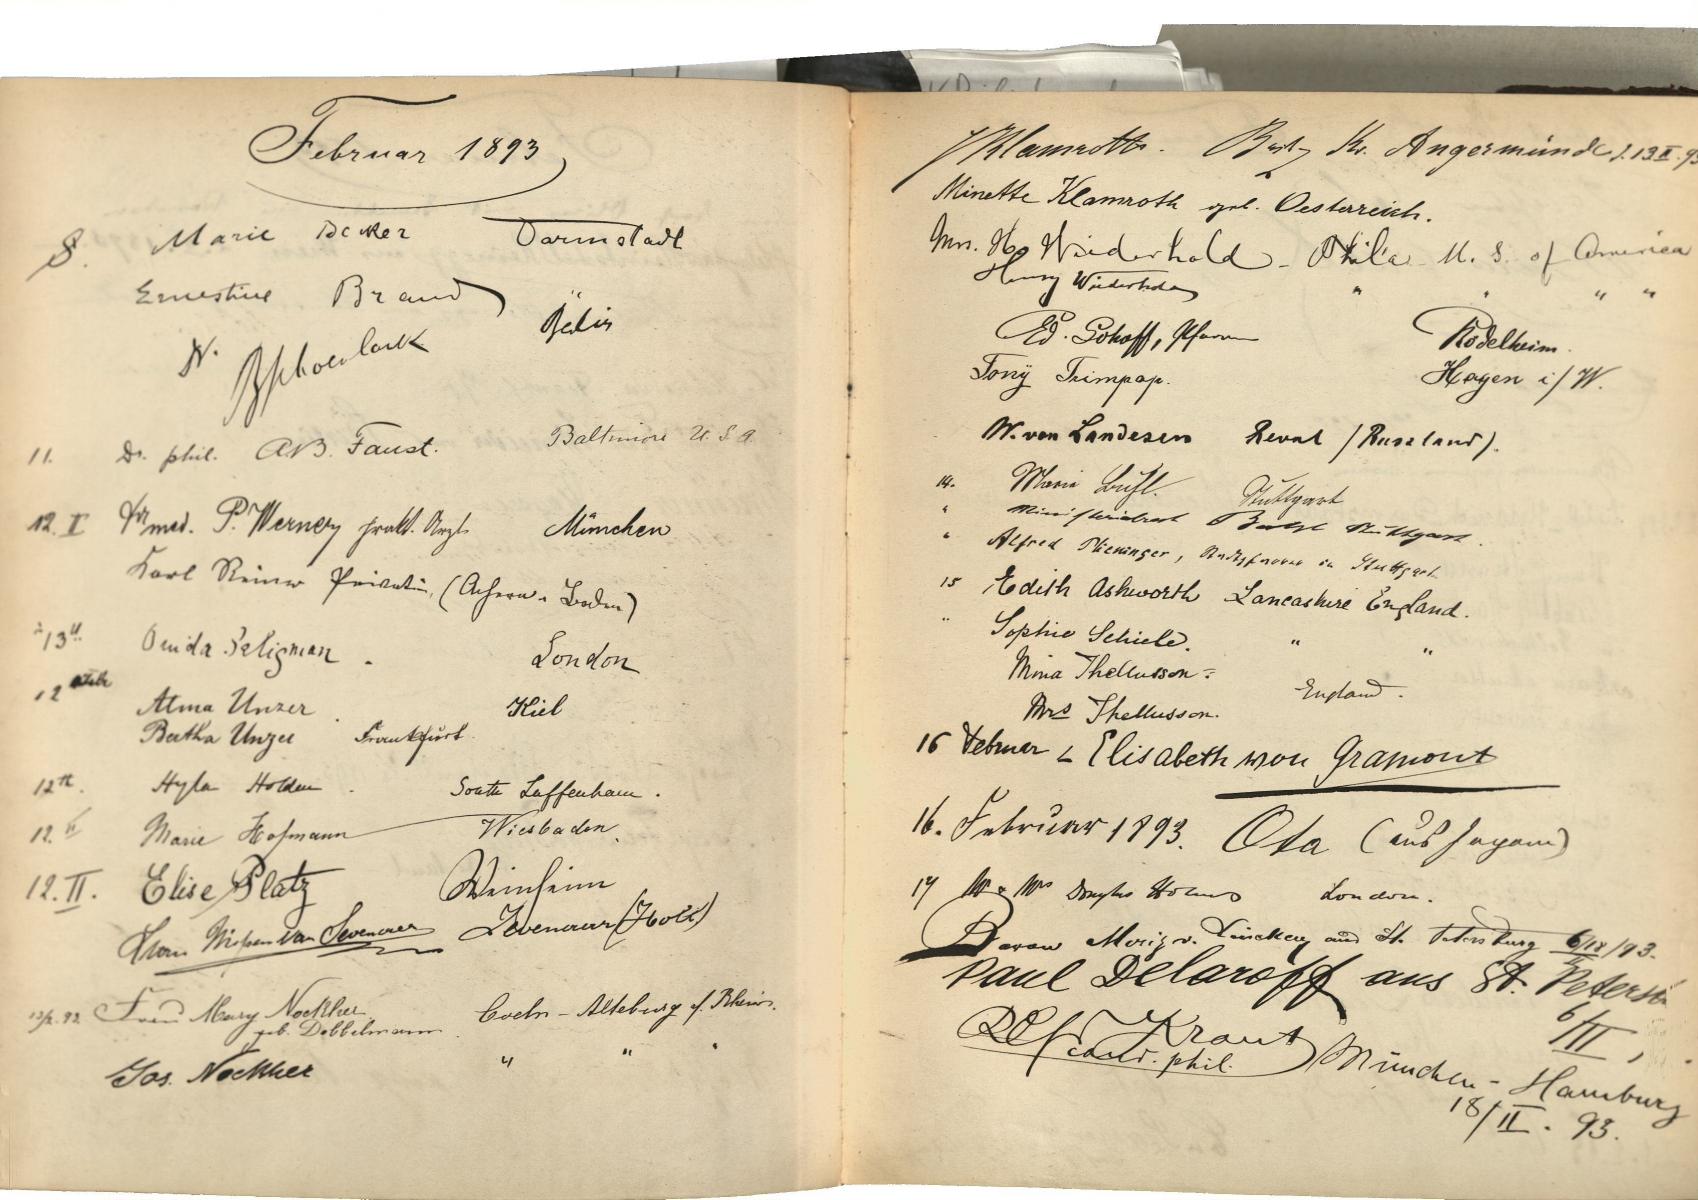 Februar 1893
8. Marie Becker Darmstadt
Ernestine Brand "
N.
11. Dr. phil. A.B. Faust. Baltimore U.S.A.
12. II Dr med. P. Werner prakt. Arzt München
Karl Privatier, (Achern - Baden)
13 Seligman London
12 Alma Unzer Kiel
Bertha Unzer Frankfurt
12th. Hyla Holden South Luffenham.
12. II Marie Hofmann Wiesbaden.
12. II. Elise Platz Weinheim
van
Frau Mary Nockher Coeln - Alteburg a/ Rhein.
geb. Dobbelmann
Jos. Nockher " " "
Klamroth. Kr. Angermünde d. 13 II. 93
Minette Klamroth geb. Oesterreich.
Mrs. H. Wiederhold - Phila U. S. of America
Henry Wiederhold " " " "
Ed. Pfarrer Rödelheim.
Tony Trimpop. Hagen i/W.
W. von Landesen Reval (Russland).
14. Maria Stuttgart
" Ministerialrat Stuttgart.
" Alfred Plieninger, in Stuttgart
15 Edith Ashworth Lancashire England.
" Sophie Schiele. " "
Mina Thellusson - England.
Mrs Thellusson.
16 Februar Elisabeth von Gramont
16. Februar 1893. Ota (aus Japan)
17 Mr & Mrs Douglas London.
Baron Moriz v. aus St. Petersburg 6/18/93.
Paul Delaroff aus St. Petersb
6/II,
Kraut München - Hamburg
cand. phil.
18/II. 93.